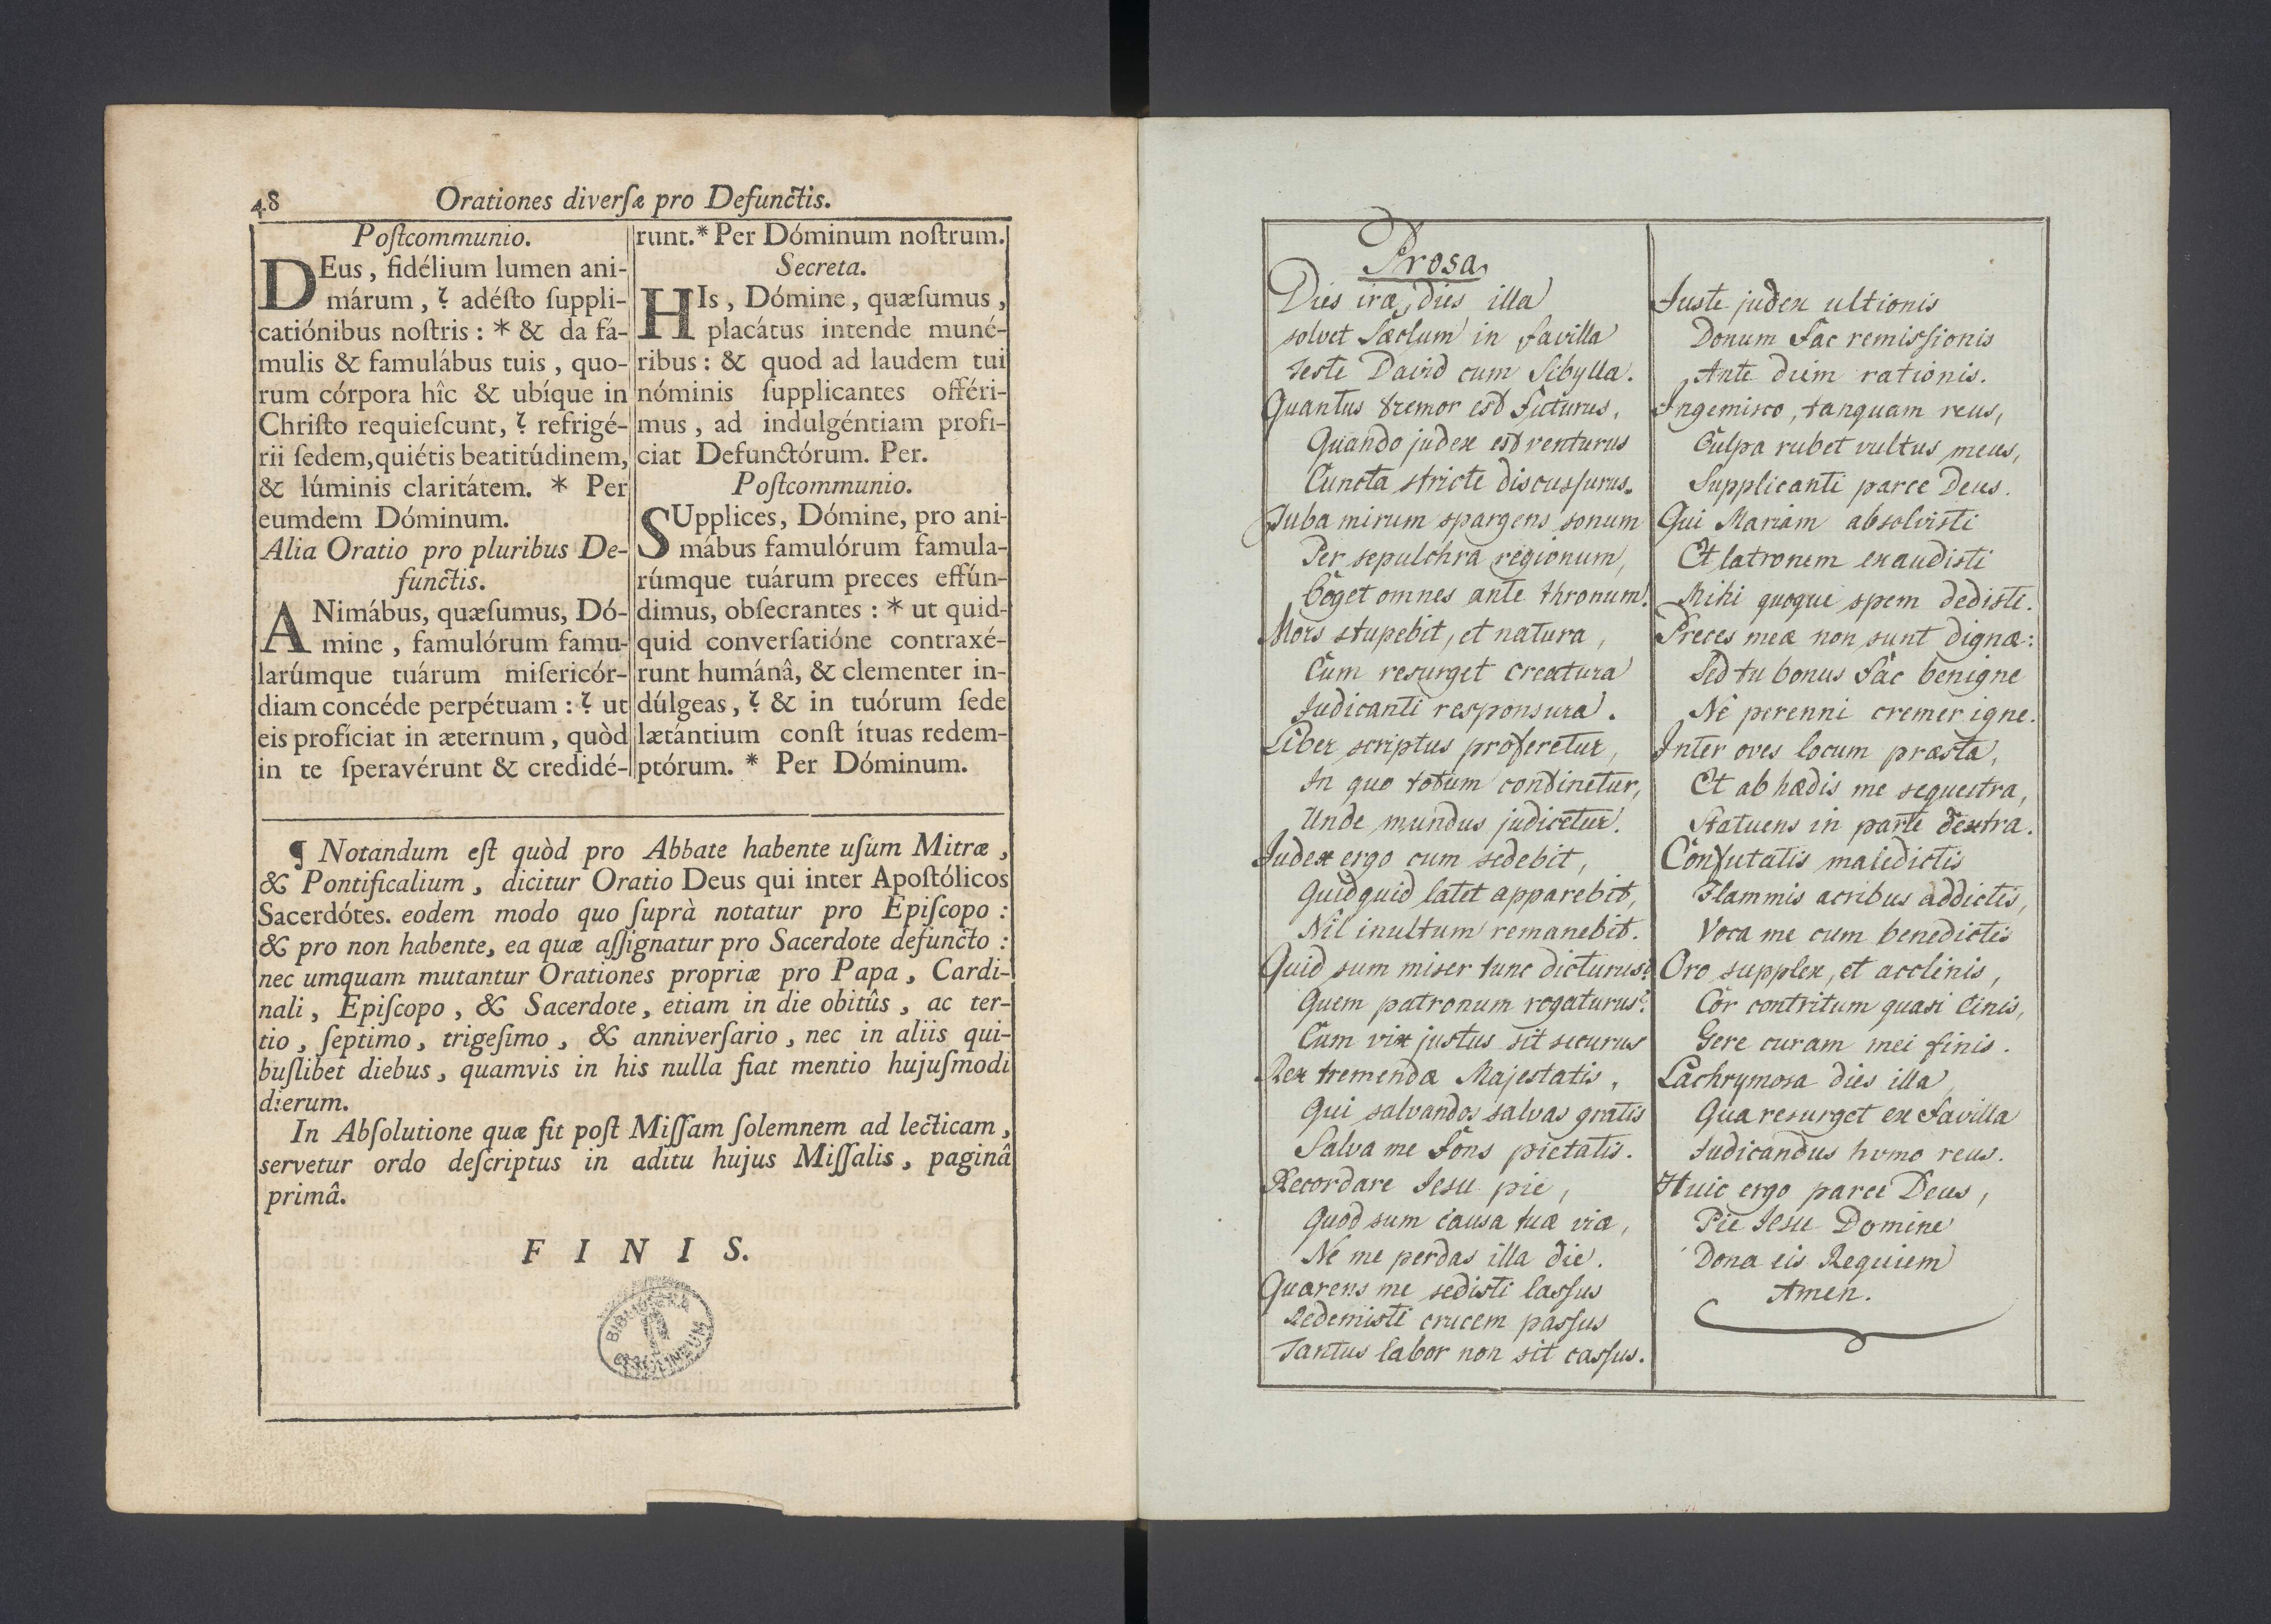 48
Orationes diverſæ pro Defunctis.
Poſtcommunio.
DEus, fidélium lumen ani-
márum, ⁊ adéſto ſuppli-
catiónibus noſtris : * & da fá-
mulis & famulábus tuis, quo-
rum córpora hîc & ubíque in
Chriſto requieſcunt, ⁊ refrigé-
rii ſedem, quiétis beatitúdinem,
& lúminis claritátem. * Per
eumdem Dóminum.
Alia Oratio pro pluribus De-
functis.
ANimábus, quæſumus, Dó-
mine, famulórum famu-
larúmque tuárum miſericór-
diam concéde perpétuam : ⁊ ut
eis profíciat in æternum, quòd
in te ſperavérunt & credidé-
runt.* Per Dóminum noſtrum.
Secreta.
HIs, Dómine, quæſumus,
placátus intende muné-
ribus : & quod ad laudem tui
nóminis ſupplicantes offéri-
mus, ad indulgéntiam profi-
ciat Defunctórum. Per.
Poſtcommunio.
SUpplices, Dómine, pro ani-
mábus famulórum famula-
rúmque tuárum preces effún-
dimus, obſecrantes : * ut quid-
quid converſatióne contraxé-
runt humánâ, & clementer in-
dúlgeas, ⁊ & in tuórum ſede
lætántium conſt ítuas redem-
ptórum. * Per Dóminum.
¶ Notandum eſt quòd pro Abbate habente uſum Mitræ,
& Pontificalium, dicitur Oratio Deus qui inter Apoſtólicos
Sacerdótes. eodem modo quo ſuprà notatur pro Epiſcopo :
& pro non habente, ea quæ aſſignatur pro Sacerdote defuncto :
nec umquam mutantur Orationes propriæ pro Papa, Cardi-
nali, Epiſcopo, & Sacerdote, etiam in die obitûs, ac ter-
tio, ſeptimo, trigeſimo, & anniverſario, nec in aliis qui-
buſlibet diebus, quamvis in his nulla fiat mentio hujuſmodi
dierum.
In Abſolutione quæ fit poſt Miſſam ſolemnem ad lecticam,
servetur ordo deſcriptus in aditu hujus Miſſalis, paginâ
primâ.
F I N I S.
BIBLIOTHECA
CAROLINEUM
Prosa
Dies iræ, dies illa
solvet Sæclum in favilla
Teste David cum Sibylla.
Quantus tremor est futurus,
Quando judex est venturus
Cuncta stricte discussurus.
Tuba mirum spargens sonum
Per sepulchra regionum,
Coget omnes ante thronum.
Mors stupebit, et natura,
Cum resurget creatura
Judicanti responsura.
Liber scriptus proferetur,
In quo totum continetur,
Unde mundus judicetur.
Judex ergo cum sedebit,
Quidquid latet apparebit,
Nil inultum remanebit.
Quid sum miser tunc dicturus?
Quem patronum rogaturus?
Cum vix justus sit securus
Rex tremendæ Majestatis,
Qui salvandos salvas gratis
Salva me fons pietatis.
Recordare Jesu pie,
Quod sum causa tuæ viæ,
Ne me perdas illa die.
Quærens me sedisti lassus
Redemisti crucem passus
Tantus labor non sit cassus.
Juste judex ultionis
Donum fac remissionis
Ante diem rationis.
Ingemisco, tanquam reus,
Culpa rubet vultus meus,
Supplicanti parce Deus.
Qui Mariam absolvisti
Et latronem exaudisti
Mihi quoque spem dedisti.
Preces meæ non sunt dignæ:
Sed tu bonus fac benigne
Ne perenni cremer igne.
Inter oves locum præsta,
Et ab hædis me sequestra,
Statuens in parte dextra.
Confutatis maledictis
Flammis acribus addictis,
Voca me cum benedictis
Oro supplex, et acclinis,
Cor contritum quasi cinis,
Gere curam mei finis.
Lachrymosa dies illa,
Qua resurget ex favilla
Judicandus homo reus.
Huic ergo parce Deus,
Pie Jesu Domine
Dona eis Requiem
Amen.